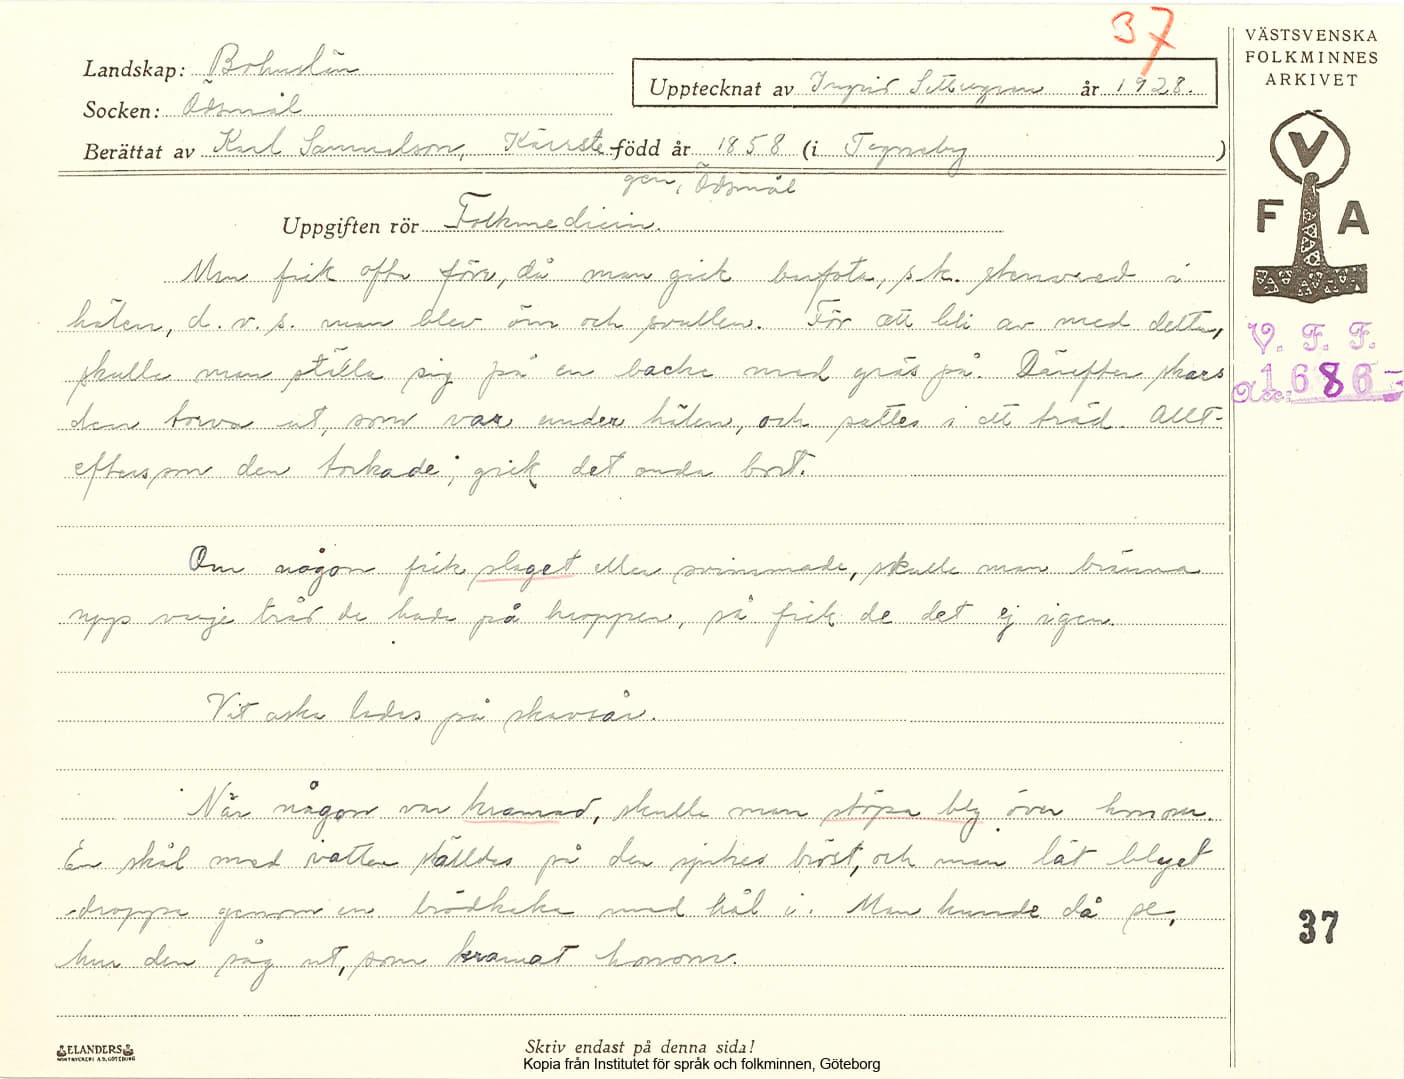 37
VÄSTSVENSKA
FOLKMINNES
ARKIVET
Landskap: Bohuslän
Upptecknat av Ingrid år 1928.
Socken: Ödsmål
Berättat av Karl Samuelson, Kärrste- född år 1858 (i Tegneby )
gen, Ödsmål
Uppgiften rör Folkmedicin.
V
F A
Man fick ofta förr, då man gick barfota, s.k. stenvred i
hälen, d.v.s. man blev öm och svullen. För att bli av med detta,
skulle man ställa sig på en backe med gräs på. Därefter skars
den torva ut, som var under hälen, och sattes i ett träd. Allt-
eftersom den torkade, gick det onda bort.
V. F. F.
Acc: 1686
Om någon fick slaget eller svimmade, skulle man bränna
upp varje tråd de hade på kroppen, så fick de det ej igen.
Vit aska lades på skavsår.
När någon var kramad, skulle man stöpa bly över honom.
En skål med vatten ställdes på den sjukes bröst, och man lät blyet
droppa genom en brödkaka med hål i. Man kunde då se,
hur den såg ut, som kramat honom.
37
ELANDERS
Skriv endast på denna sida!
Kopia från Institutet för språk och folkminnen, Göteborg